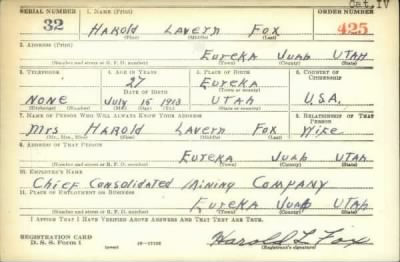 Cat. IV
SERIAL NUMBER 1. NAME (Print) ORDER NUMBER
32 Harold Lavern Fox 425
(First) (Middle) (Last)
2. ADDRESS (Print)
Eureka Juab Utah
(Number and street or R. F. D. number) (Town) (County) (State)
3. TELEPHONE 4. AGE IN YEARS 5. PLACE OF BIRTH 6. COUNTRY OF CITIZENSHIP
27 Eureka
DATE OF BIRTH (Town or county)
None July 15 1913 Utah U.S.A.
(Exchange) (Number) (Mo.) (Day) (Yr.) (State or country)
7. NAME OF PERSON WHO WILL ALWAYS KNOW YOUR ADDRESS 8. RELATIONSHIP OF THAT PERSON
Mrs Harold Lavern Fox Wife
(Mr., Mrs., Miss) (First) (Middle) (Last)
9. ADDRESS OF THAT PERSON
Eureka Juab Utah
(Number and street or R. F. D. number) (Town) (County) (State)
10. EMPLOYER'S NAME
Chief Consolidated Mining Company
11. PLACE OF EMPLOYMENT OR BUSINESS
Eureka Juab Utah
(Number and street or R. F. D. number) (Town) (County) (State)
I AFFIRM THAT I HAVE VERIFIED ABOVE ANSWERS AND THAT THEY ARE TRUE.
REGISTRATION CARD
D. S. S. Form 1 Harold L Fox
(Registrant's signature)